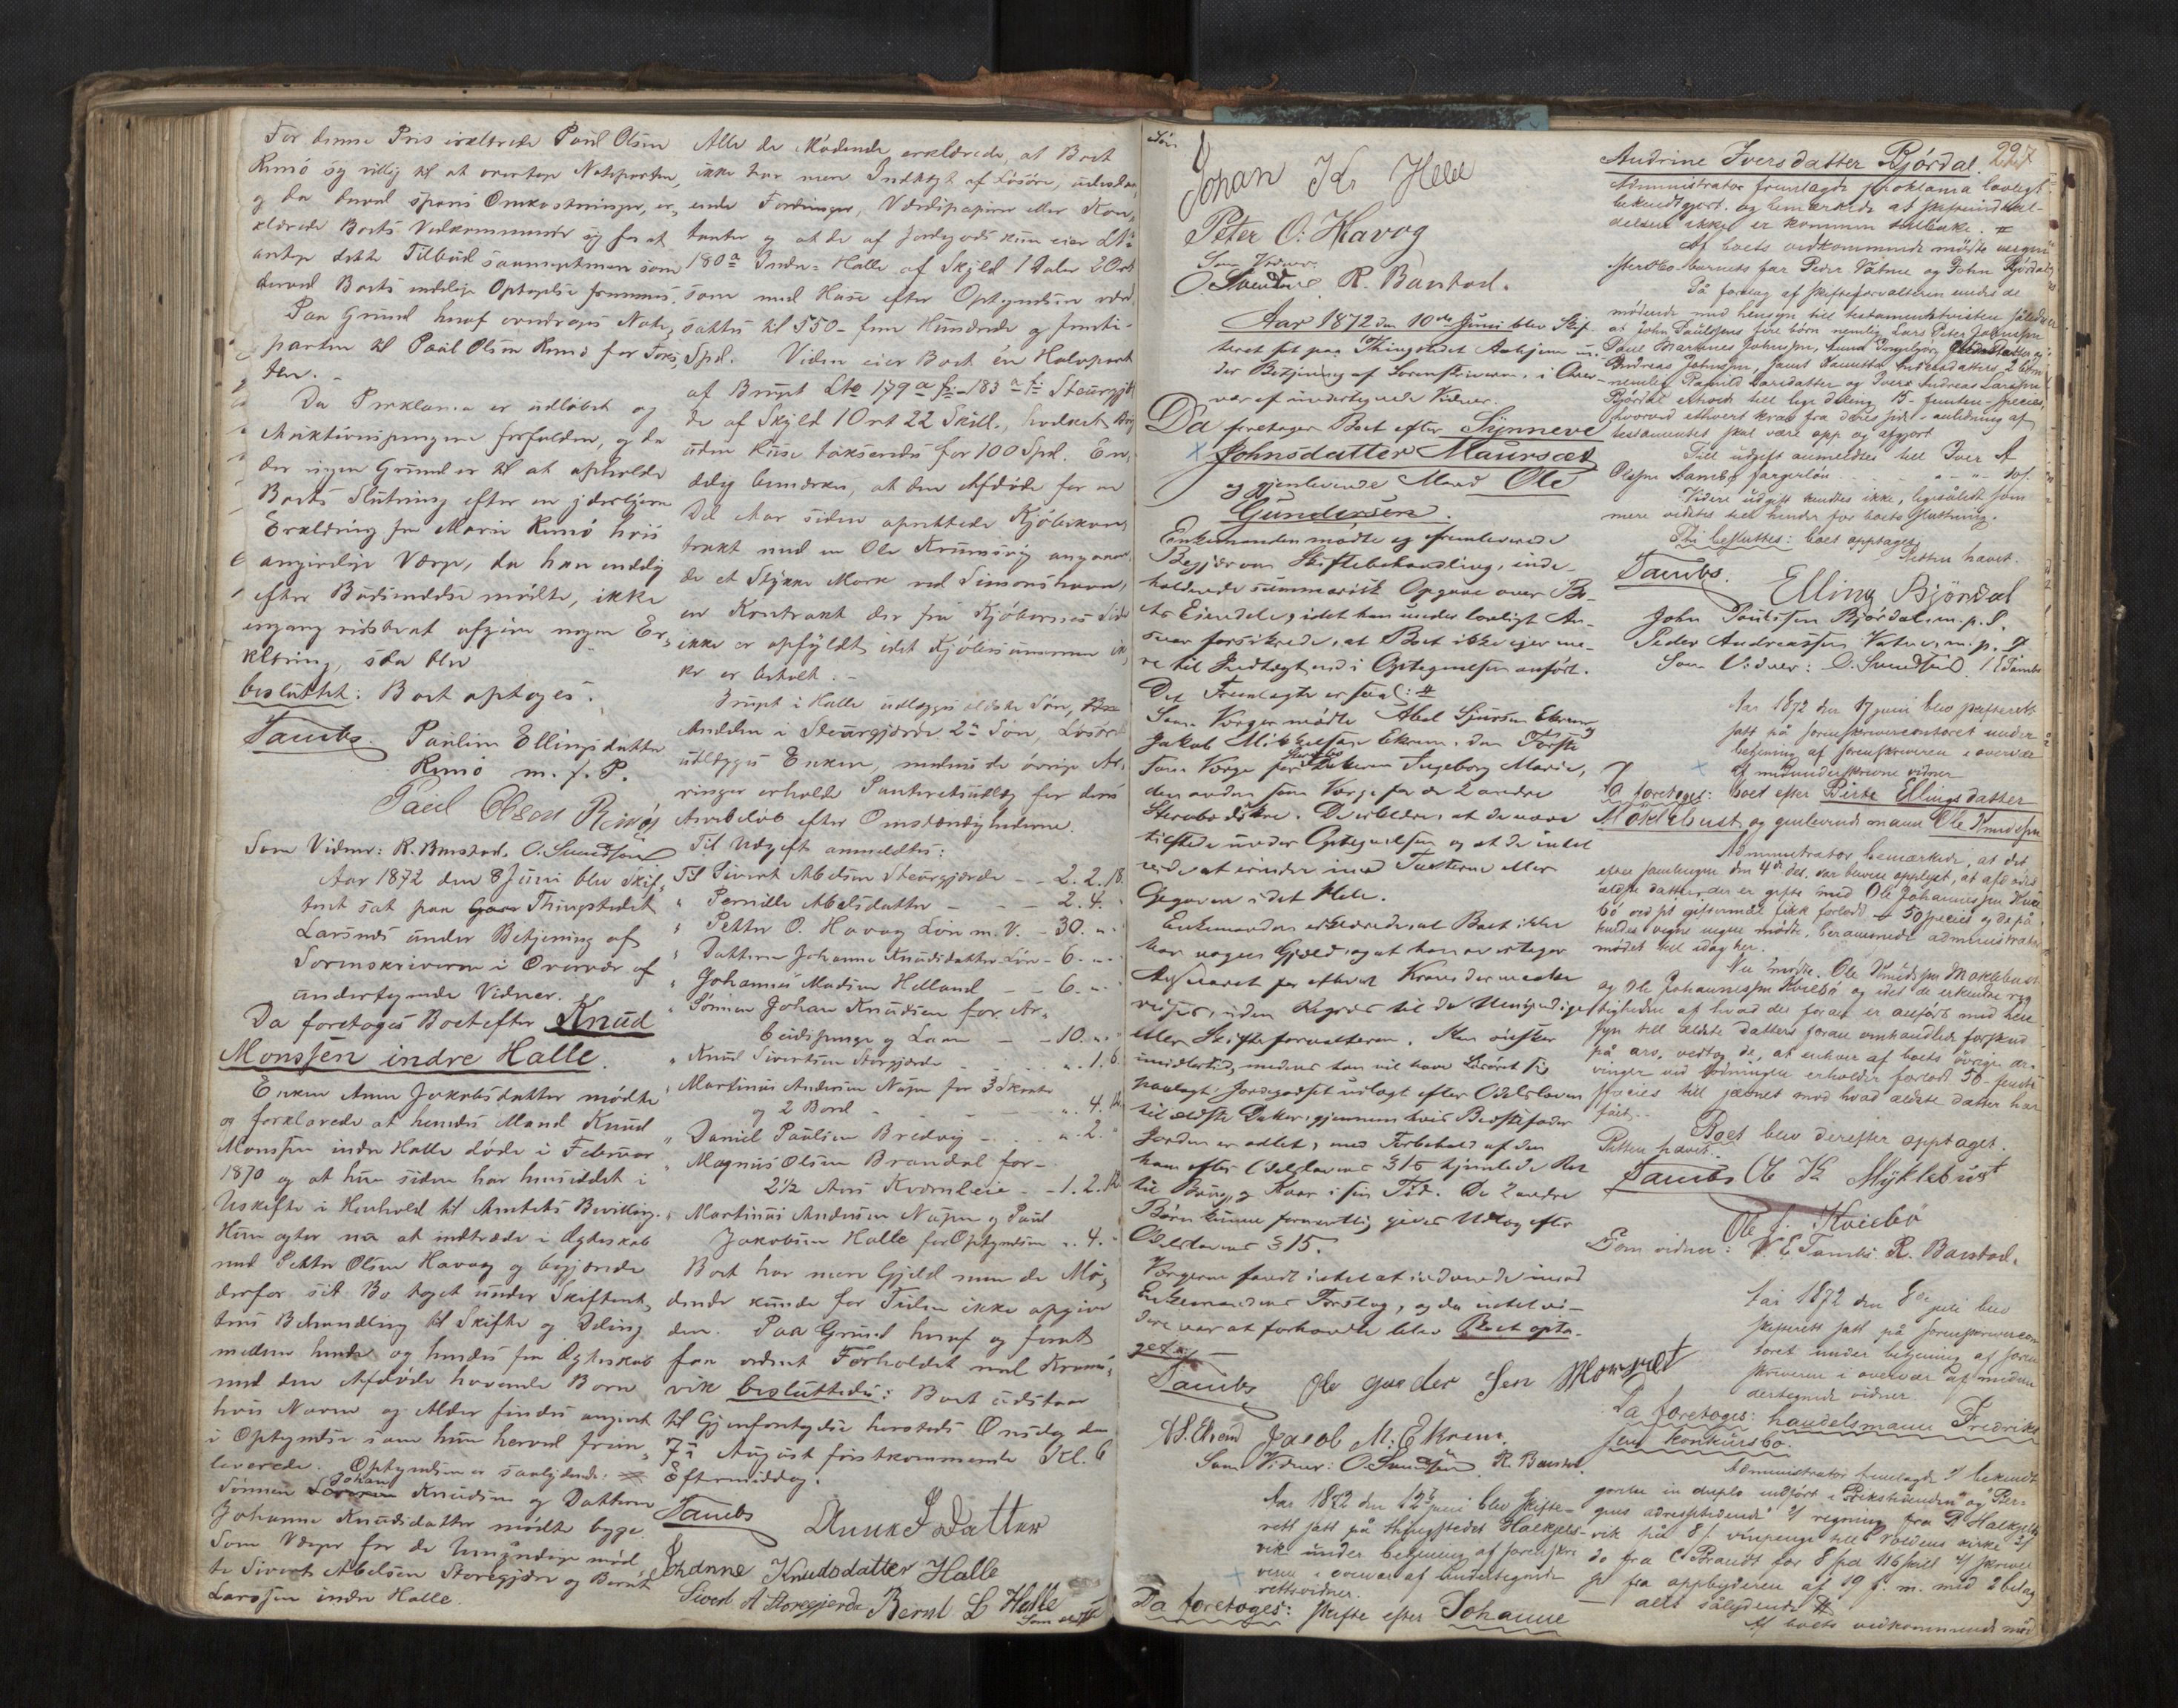 For denne Pris erklærede Paul Olsen
Rimö sig villig til at overtage Noteparten,
og da derved spares Omkostninger, er-
klærede Boets Vedkommende sig for at
antage dette Tilbud saameget mere som
derved Boets endelige Optagelse fremmes.
Paa Grund heraf overdrages Note-
parten til Paul Olsen Rimö for
Da Proklama er udløbet og
Auktionspengene forfaldne, og da
der ingen Grund er til at opholde
Boets Slutning efter en
Erklæring fra Marie Rimö hvis
angivelige Værge, da han endelig
efter Budsendelse mødte, ikke
engang vidste at afgive nogen Er-
klæring, saa blev
besluttet: Boet optages.
Tambs. Pauline Ellingsdatter
Rimö m. f. P.
Paul Olsen Rimøj
Som Vidner: R. Barstad. O. Svendsen
Aar 1872 den 8 Juni blev Skif-
teret sat paa Thingstedet
Larsnes under Betjening af
Sorenskriveren i Overvær af
undertegnede Vidner.
Da foretoges Boet efter Knud
Monssen indre Halle.
Enken Anne Jakobsdatter mødte
og forklarede at hendes Mand Knud
Monssen indre Halle døde i Februar
1870 og at hun siden har hensiddet i
Uskifte i Henhold til Amtets Bevilling.
Hun agter nu at indtræde i Ægteskab
med Petter Olsen Havog og begjærede
derfor sit Bo taget under Skifteret-
tens Behandling til Skifte og Deling
mellem hende og hendes fra Ægteskab
med den Afdøde havende Børn
hvis Navne og Alder findes angivet
i Optegnelsen som hun herved frem-
leverede. Optegnelsen er saalydende:
Sønnen Johan Knudsen og Datteren
Johanne Knudsdatter mødte begge.
Som Værger for de Umyndige mød-
te Sivert Abelsen Storegjære og Bernt
Larssen indre Halle.
Alle de Mødende erklærede, at Boet
ikke har mere Indtægt af Løsøre, udestaa-
ende Fordringer, Værdipapirer eller Kon-
tanter og at de af Jordegods kun eier Lt.
180a Indre-Halle af Skyld 1 Daler 2 Ort
som med Huse efter Optegnelsen værd-
sattes til 550- fem Hundrede og femti-
Spd. Videre eier Boet én Halvpart
af Bruget Lto 179a - 183a Steurgjer-
de af Skyld 1 Ort 22 Skill., hvilket
uden Huse takseredes for 100 Spd. En-
delig bemærkes, at den Afdøde for en
Del Aar siden oprettede Kjøbekon-
trakt med en Ole angaaen-
de et Stykke Mark ved Simonshavn,
en Kontrakt der fra Kjøberens Side
ikke er opfyldt idet Kjøbesummen ik-
ke er betalt.-
Bruget i Halle udlægges ældste Søn,
Andelen i Steurgjerde 2den Søn, Løsøret
udlægges Enken, medens de øvrige Ar-
vinger erholde Panteretsudlæg for deres
Arvebeløb efter Omstændighederne.
Til Udgift anmeldtes:
Til Sivert Abelsen Steurgjerde - - 2. 2. 18.
" Pernille Abelsdatter - - - 2. 4. "
" Petter O. Havog Løn m. V. - 30. " "
" Datteren Johanne Knudsdatter Løn - 6. " "
" Johannes Madsen Helland - - 6. " "
" Sønnen Johan Knudsen for Ar-
beidspenge og Laan - - 10. " "
" Knud Sivertsen Storgjerde - - " 1. 6
" Martinus Andersen for 3 Skjorter
og 2 Bord - - - " 4. 12
" Daniel Paulsen Bredvig - - " 2. "
" Magnus Olsen Brandal for
2½ Aars Kværnleie - - 1. 2. 12
" Martinus Andersen og Paul
Jakobsen Halle for Optegnelsen " 4. "
Boet har mere Gjæld men de Mø-
dende kunde for Tiden ikke opgive
den. Paa Grund heraf og forat
faa ordnet Forholdet med
vik besluttedes: Boet udstaar
til Gjenforetagelse hersteds Onsdag den
7de August førstkommende Kl. 6
Eftermiddag.
Tambs Anne J Datter
Johanne Knudsdatter Halle
Sivert A Storegjerde Bernt L Halle
Som
Johan Kr Halle
Peter O: Havog
Som Vidner:
O. Svendsen R. Barstad.
Aar 1872 den 10de Juni blev Skif-
teret sat paa Thingstedet Aahjem un-
der Betjening af Sorenskriveren, i Over-
vær af undertegnede Vidner.
Da foretages Boet efter Synneve
Johnsdatter Maursæt
og gjenlevende Mand Ole
Gundersen.
Enkemanden mødte og fremleverede
Begjæring om Skiftebehandling, inde-
holdende summarisk Opgave over Bo-
ets Eiendele, idet han under lovligt An-
svar forsikrede, at Boet ikke ejer me-
re til Indtægt end i Optegnelsen anført.
Det Fremlagte er saal: #
Som Værger mødte Abel Sjursen Ekrem og
Jakob Mikkelsen Ekrem, den Første
som Værge for Datteren Ingeborg Marie,
den anden som Værge for de 2 andre
Sterbødøtre. De erklærer, at de vare
tilstede under Optegnelsen og at de intet
vide at erindre imod Taxterne eller
Opgaven i det Hele.
Enkemanden erklærede, at Boet ikke
har nogen Gjæld, og at han overtager
Ansvaret for ethvert Krav der maatte
vises, uden Regres til de Umyndige
eller Skifteforvalteren. Han ønsker
imidlertid, medens han vil have Løsøret sig
paalagt, Jordegodset udlagt efter Odelsloven
til ældste Datter, gjennem hvis Bedstefader
Jorden er odlet, med Forbehold af den
ham efter Odelslovens § 15 hjemlede Ret
til Brug og Kaar i sin Tid. De 2 andre
Børn kunne formentlig gives Udlæg efter
Odelslovens § 15.
Værgerne fandt intet at indvende imod
Enkemandens Forslag, og da intet vi-
dere var at forhandle blev Boet opta-
get.
Tambs Ole gunder Sen Morsæt
A. S. Ekrem Jacob M: Ekrem.
Som Vidner: O. Svendsen R. Barstad.
Aar 1872 den 12te juni blev skifte-
rett satt på thingstedet Haukjels-
vik under betjening af sorenskri-
veren i overvær af undertegnede
rettsvidner.
Da foretoges: skifte efter Johanne
227
Andrine Iversdatter Bjørdal.
Administrator fremlagde proklama lovligt
bekendtgjort. og bemærkede at skifteindkal-
delsen ikke er kommen tilbake. #
Af boets vedkommende mødte
barnets far Peder Vatne og John Bjørdal
På foretag af skifteforvalteren enedes de
mødende med hensyn till testamentstvisten således
at John Paulssens fire børn nemlig Lars Peter Johnsen
Paul Martines Johnsen,
Andreas Johnsen, samt 2 børn
nemlig Larsdatter og Iver Andreas Larssen
Bjørdal erholder till lige deling 15- femten- species,
hvorved ethvert krav fra deres side i anledning af
testamentet skal være opp og afgjort
Till udgift anmeldtes till Iver A
Olsen Aambø
Videre udgift kendtes ikke, ligesålidt som
mere vidstes till hinder for boets sluttning.
Thi besluttes: boet opptages.
Retten hævet.
Tambs. Elling Björdal
John Paulssen Bjørdal m. p. P.
Peder Andreassen Vatne, m. p. P.
Som Vidner: O. Svendsen. V. E Tambs
Aar 1872 den 17 juni blev skifterett
satt på sorenskrivercontoret under
betjening af sorenskriveren i overvær
af medunderskrevne vidner
Da foretoges: boet efter Birte Ellingsdatter
Möklebust og genlevende mann Ole Knudssen
Administrator bemærkede, at det
efter samlingen den 4de ds. var bleven opplyst, at afdødes
ældste datter, der er gift med Ole Johannessen Kvie-
bö ved sit giftermål fikk forlodd 50 species og da på
hendes vegne ingen mødte, berammede administrator
mødet till idag her.
Nu mødte Ole Knudssen Moklebust
og Ole Johannessen Kviebö og idet de erkendte rig-
tigheden af hvad der foran er anført med hen-
syn till ældste datters foran omhandlede forskud
på arv, vedtog de, at enhver af boets øvrige ar-
vinger ved lodningen erholder forlodd 50- femti
species till jævnet mod hvad ældste datter har
fået.
Boet blev derefter opptaget.
Retten hævet.
Tambs Ole K Myklebust
Ole J. Kviebø
Som vidner: V. E Tambs. R. Barstad.
Aar 1872 den 8de juli blev
skifterett satt på sorenskrivercon-
toret under betjening af soren-
skriveren i overvær af medun-
dertegnede vidner.
Da foretoges: handelsmann Fredriks-
sens konkursbo.
Administrator fremlagde 1/ bekendt-
gørelse in duplo indført i "Rikstidenden" og "Ber-
gens adressetidende" 2/ regning fra P Haukjels-
vik på 8/ vinpenge till Voldens kirke 3/
do fra C Brandt for 8 spd 116 skill 4/ skrivel-
se fra oppbyderen af 19 f. m. med 2 bilag
- alt sålydende #
Af boets vedkommende mød-